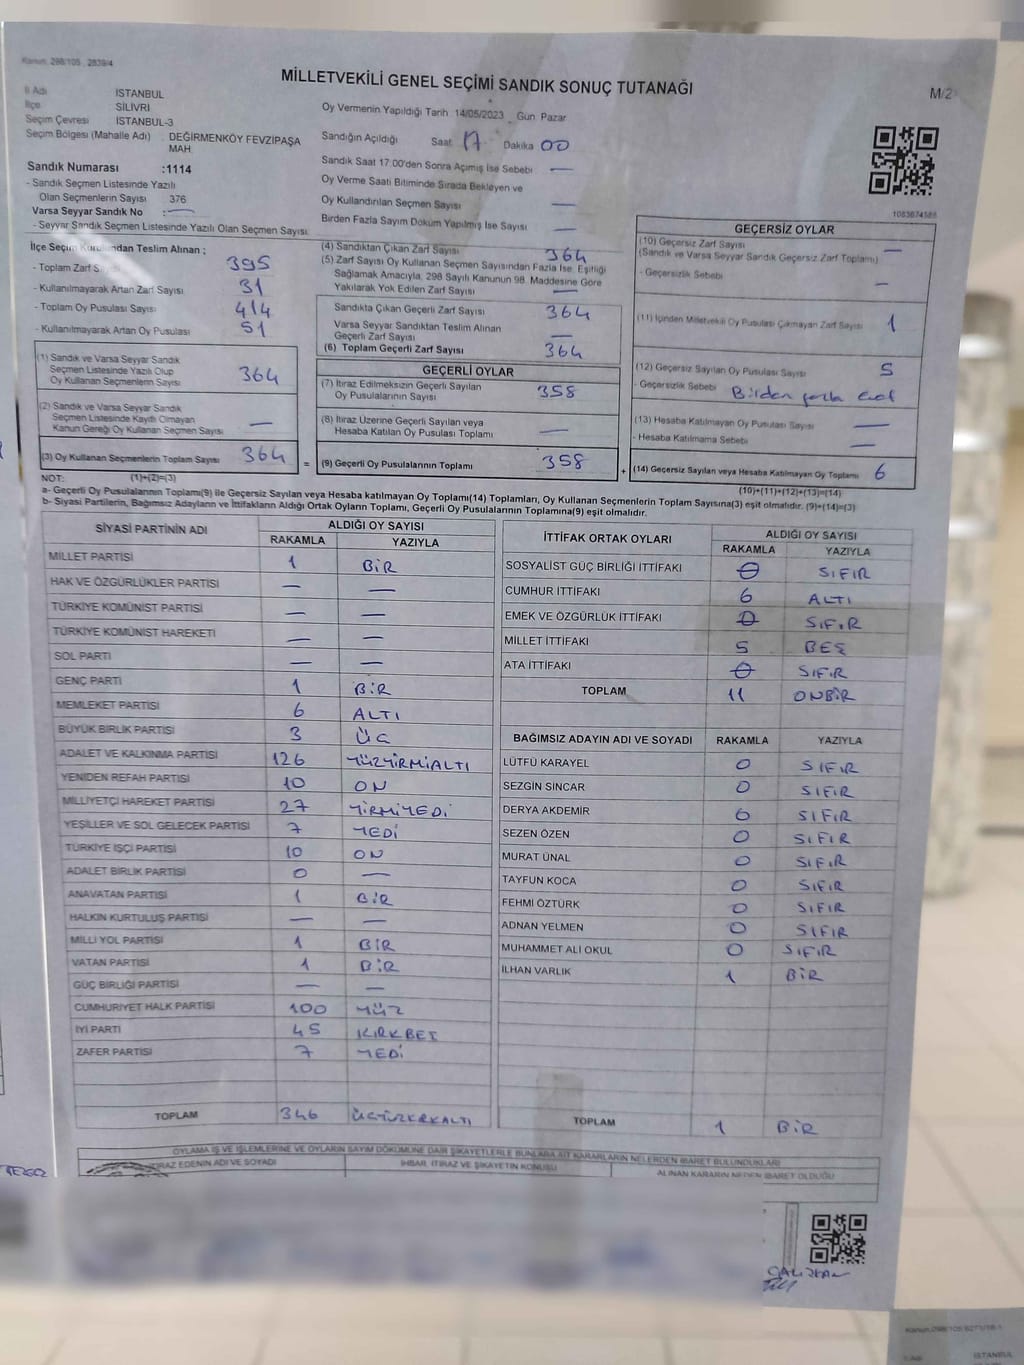 Kanun, 298/105 , 2839/4
MİLLETVEKİLİ GENEL SEÇİMİ SANDIK SONUÇ TUTANAĞI
M/2
İl Adı İSTANBUL
İlçe SİLİVRİ
Seçim Çevresi İSTANBUL-3
Seçim Bölgesi (Mahalle Adı) : DEĞİRMENKÖY FEVZİPAŞA
MAH
Sandık Numarası :1114
- Sandık Seçmen Listesinde Yazılı
Olan Seçmenlerin Sayısı 376
Varsa Seyyar Sandık No : —
- Seyyar Sandık Seçmen Listesinde Yazılı Olan Seçmen Sayısı
Oy Vermenin Yapıldığı Tarih 14/05/2023 Gün Pazar
Sandığın Açıldığı Saat 17 Dakika 00
Sandık Saat 17:00'den Sonra Açımış İse Sebebi —
Oy Verme Saati Bitiminde Sırada Bekleyen ve
Oy Kullandırılan Seçmen Sayısı —
Birden Fazla Sayım Döküm Yapılmış İse Sayısı —
1083674388
İlçe Seçim Kurulundan Teslim Alınan ;
- Toplam Zarf Sayısı 395
- Kullanılmayarak Artan Zarf Sayısı 31
- Toplam Oy Pusulası Sayısı 414
- Kullanılmayarak Artan Oy Pusulası 51
(1) Sandık ve Varsa Seyyar Sandık
Seçmen Listesinde Yazılı Olup
Oy Kullanan Seçmenlerin Sayısı 364
(2) Sandık ve Varsa Seyyar Sandık
Seçmen Listesinde Kayıtlı Olmayan
Kanun Gereği Oy Kullanan Seçmen Sayısı —
(3) Oy Kullanan Seçmenlerin Toplam Sayısı 364 =
(4) Sandıktan Çıkan Zarf Sayısı 364
(5) Zarf Sayısı Oy Kullanan Seçmen Sayısından Fazla İse, Eşitliği
Sağlamak Amacıyla, 298 Sayılı Kanunun 98. Maddesine Göre
Yakılarak Yok Edilen Zarf Sayısı —
Sandıkta Çıkan Geçerli Zarf Sayısı 364
Varsa Seyyar Sandıktan Teslim Alınan
Geçerli Zarf Sayısı —
(6) Toplam Geçerli Zarf Sayısı 364
GEÇERLİ OYLAR
(7) İtiraz Edilmeksizin Geçerli Sayılan
Oy Pusulalarının Sayısı 358
(8) İtiraz Üzerine Geçerli Sayılan veya
Hesaba Katılan Oy Pusulası Toplamı —
(9) Geçerli Oy Pusulalarının Toplamı 358 +
GEÇERSİZ OYLAR
(10) Geçersiz Zarf Sayısı —
(Sandık ve Varsa Seyyar Sandık Geçersiz Zarf Toplamı)
- Geçersizlik Sebebi —
(11) İçinden Milletvekili Oy Pusulası Çıkmayan Zarf Sayısı 1
(12) Geçersiz Sayılan Oy Pusulası Sayısı 5
- Geçersizlik Sebebi Birden fazla
(13) Hesaba Katılmayan Oy Pusulası Sayısı —
- Hesaba Katılmama Sebebi —
(14) Geçersiz Sayılan veya Hesaba Katılmayan Oy Toplamı 6
NOT: (1)+(2)=(3) (10)+(11)+(12)+(13)=(14)
a- Geçerli Oy Pusulalarının Toplamı(9) ile Geçersiz Sayılan veya Hesaba katılmayan Oy Toplamı(14) Toplamları, Oy Kullanan Seçmenlerin Toplam Sayısına(3) eşit olmalıdır. (9)+(14)=(3)
b- Siyasi Partilerin, Bağımsız Adayların ve İttifakların Aldığı Ortak Oyların Toplamı, Geçerli Oy Pusulalarının Toplamına(9) eşit olmalıdır.
SİYASİ PARTİNİN ADI ALDIĞI OY SAYISI
RAKAMLA YAZIYLA
MİLLET PARTİSİ 1 BİR
HAK VE ÖZGÜRLÜKLER PARTİSİ — —
TÜRKİYE KOMÜNİST PARTİSİ — —
TÜRKİYE KOMÜNİST HAREKETİ — —
SOL PARTİ — —
GENÇ PARTİ 1 BİR
MEMLEKET PARTİSİ 6 ALTI
BÜYÜK BİRLİK PARTİSİ 3 ÜÇ
ADALET VE KALKINMA PARTİSİ 126 YÜZYİRMİALTI
YENİDEN REFAH PARTİSİ 10 ON
MİLLİYETÇİ HAREKET PARTİSİ 27 YİRMİYEDİ
YEŞİLLER VE SOL GELECEK PARTİSİ 7 YEDİ
TÜRKİYE İŞÇİ PARTİSİ 10 ON
ADALET BİRLİK PARTİSİ 0 —
ANAVATAN PARTİSİ 1 BİR
HALKIN KURTULUŞ PARTİSİ — —
MİLLİ YOL PARTİSİ 1 BİR
VATAN PARTİSİ 1 BİR
GÜÇ BİRLİĞİ PARTİSİ — —
CUMHURİYET HALK PARTİSİ 100 YÜZ
İYİ PARTİ 45 KIRKBEŞ
ZAFER PARTİSİ 7 YEDİ
TOPLAM 346 ÜÇYÜZKRKALTI
İTTİFAK ORTAK OYLARI ALDIĞI OY SAYISI
RAKAMLA YAZIYLA
SOSYALİST GÜÇ BİRLİĞİ İTTİFAKI 0 SIFIR
CUMHUR İTTİFAKI 6 ALTI
EMEK VE ÖZGÜRLÜK İTTİFAKI 0 SIFIR
MİLLET İTTİFAKI 5 BEŞ
ATA İTTİFAKI 0 SIFIR
TOPLAM 11 ONBİR
BAĞIMSIZ ADAYIN ADI VE SOYADI RAKAMLA YAZIYLA
LÜTFÜ KARAYEL 0 SIFIR
SEZGİN SİNCAR 0 SIFIR
DERYA AKDEMİR 0 SIFIR
SEZEN ÖZEN 0 SIFIR
MURAT ÜNAL 0 SIFIR
TAYFUN KOCA 0 SIFIR
FEHMİ ÖZTÜRK 0 SIFIR
ADNAN YELMEN 0 SIFIR
MUHAMMET ALİ OKUL 0 SIFIR
İLHAN VARLIK 1 BİR
TOPLAM 1 BİR
OYLAMA İŞ VE İŞLEMLERİNE VE OYLARIN SAYIM DÖKÜMÜNE DAİR ŞİKAYETLERLE BUNLARA AİT KARARLARIN NELERDEN İBARET BULUNDUKLARI
İTİRAZ EDENİN ADI VE SOYADI İHBAR, İTİRAZ VE ŞİKAYETİN KONUSU ALINAN KARARIN NEDEN İBARET OLDUĞU
ÇALIŞKAN
Kanun,298/105
İl Adı İSTANBUL